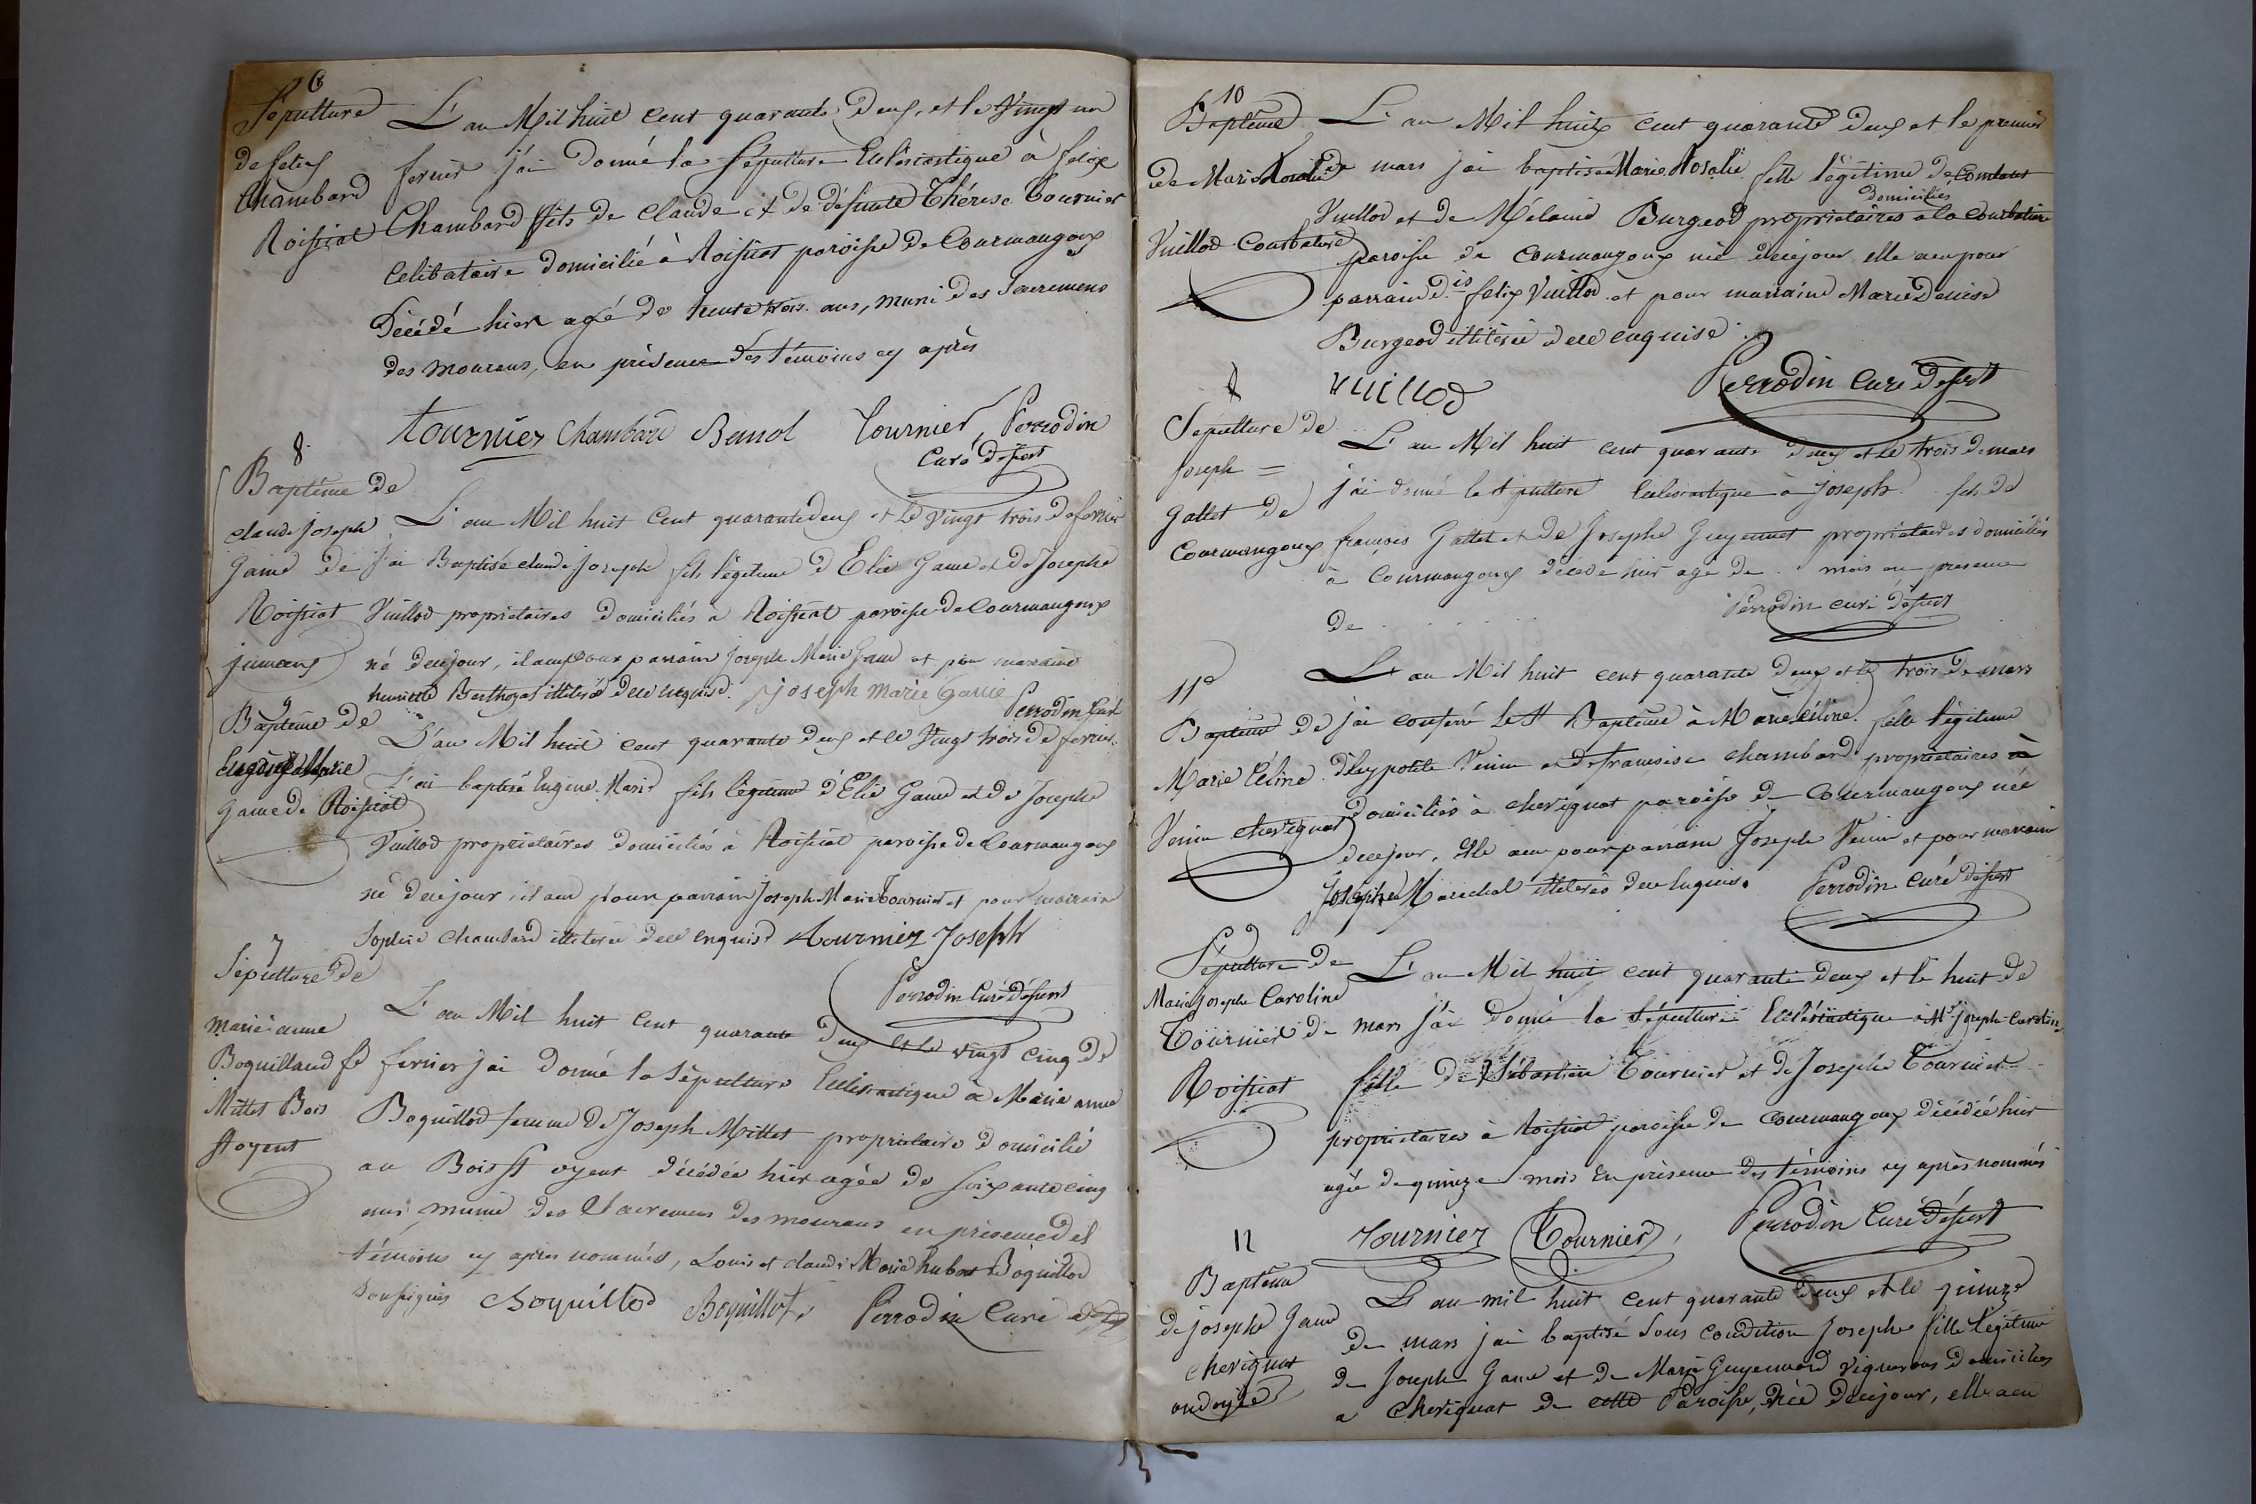 6
Sépulture
de felix
Chambard
Roissiat
L'an Mil huit cent quarante deux, et le vingt un
fevrier j'ai donné la Sépulture Ecclésiastique à felix
Chambard fils de Claude et de défunte Thérese Tournier
Celibataire domicilié à Roissiat paroisse de Courmangoux
Décédé hier agé de trente trois ans, muni des Sacremens
des mourans, en présence des témoins cy après
Tournier Chambard Tournier Perrodin
Curé dessert
8
Baptême de
claude joseph
Game de
Roissiat
jumeaux
L'an Mil huit Cent quarante deux et le vingt trois de fevrier
j'ai Baptisé claude joseph fils légitime d'Elie Game et de Josephe
Vuillod propriétaires domiciliés à Roissiat paroisse de Courmangoux
né de ce jour, il a eu pour parrain Joseph Marie Game et pour marraine
Berthozat illitérés de ce enquis. joseph marie Game
Perrodin Curé
9
Baptême de
Eugène Marie
Game de Roissiat
L'an Mil huit cent quarante deux et le Vingt trois de fevrier
J'ai baptisé Eugene Marie fils légitime d'Elie Game et de Josephe
Vuillod propriétaires domiciliés à Roissiat paroisse de Courmangoux
né de ce jour, il a eu pour parrain Joseph Marie Tournier et pour marraine
Sophie Chambard illiterée de ce enquise Tournier Joseph
Perrodin Curé dessert
7
Sépulture de
marie anne
Boquilland fe
Millet Bois
St oyent
L'an Mil huit Cent quarante deux et le vingt cinq de
fevrier j'ai donné la Sépulture Ecclesiastique à Marie anne
Boquillod femme de Joseph Millet propriétaire domicilié
au Bois St oyent décédée hier agée de soixante cinq
ans munie des Sacremens des mourans en présence des
témoins cy après nommés, Louis et claude Marie hubert Boquillod
Soussignés Boquillod Boquillot, Perrodin Curé
10
Baptême
de Marie Rosalie
Vuillod Courbature
L'an Mil huit cent quarante deux et le premier
de mars j'ai baptisé Marie Rosalie fille légitime de Constant
domiciliés
Vuillod et de Mélanie Burgeod propriétaires a la Courbature
paroisse de Courmangoux née de ce jour elle a eu pour
parrain felix Vuillod et pour marraine Marie Denise
Burgeod illitérée de ce enquise
vuillod Perrodin Cure dessert
8
Sépulture de
Joseph =
Gallet de
Courmangoux
L'an Mil huit cent quarante deux et le trois de mars
j'ai donné la sépulture Ecclesiastique à Joseph fils de
françois Gallet et de Josephe Guyennet propriétaires domiciliés
à Courmangoux décédé hier agé de mois en presence
de
Perrodin curé dessert
11e
Baptême de
Marie Céline
Venin Chevignat
L'an Mil huit cent quarante deux et le trois de mars
j'ai conferé le St Baptême à Marie Céline fille légitime
d'hypolite Venin et de francoise chambard propriétaires à
domiciliés à Chevignat paroisse de Courmangoux née
de ce jour, Elle a eu pour parrain Joseph Venin et pour marraine
Josephe Maréchal illiterés de ce enquis. Perrodin curé dessert
9
Sépulture de
Marie Josephe Caroline
Tournier de
Roissiat
L'an Mil huit cent quarante deux et le huit de
mars j'ai donné la sépulture Ecclésiastique à Me Joseph Caroline
fille de Sébastien Tournier et de Josephe Tournier
propriétaires à Roissiat paroisse de Courmangoux décédée hier
agée de quinze mois En présence des témoins cy après nommés
Tournier Tournier, Perrodin Curé dessert
12
Baptême
de josephe Game
Chevignat
ondoyée
L'an mil huit cent quarante deux et le quinze
de mars j'ai baptisé Sous condition Josephe fille légitime
de Joseph Game et de Marie Guyennard vignerons domiciliés
a Chevignat de cette Paroisse, née de ce jour, elle a eu